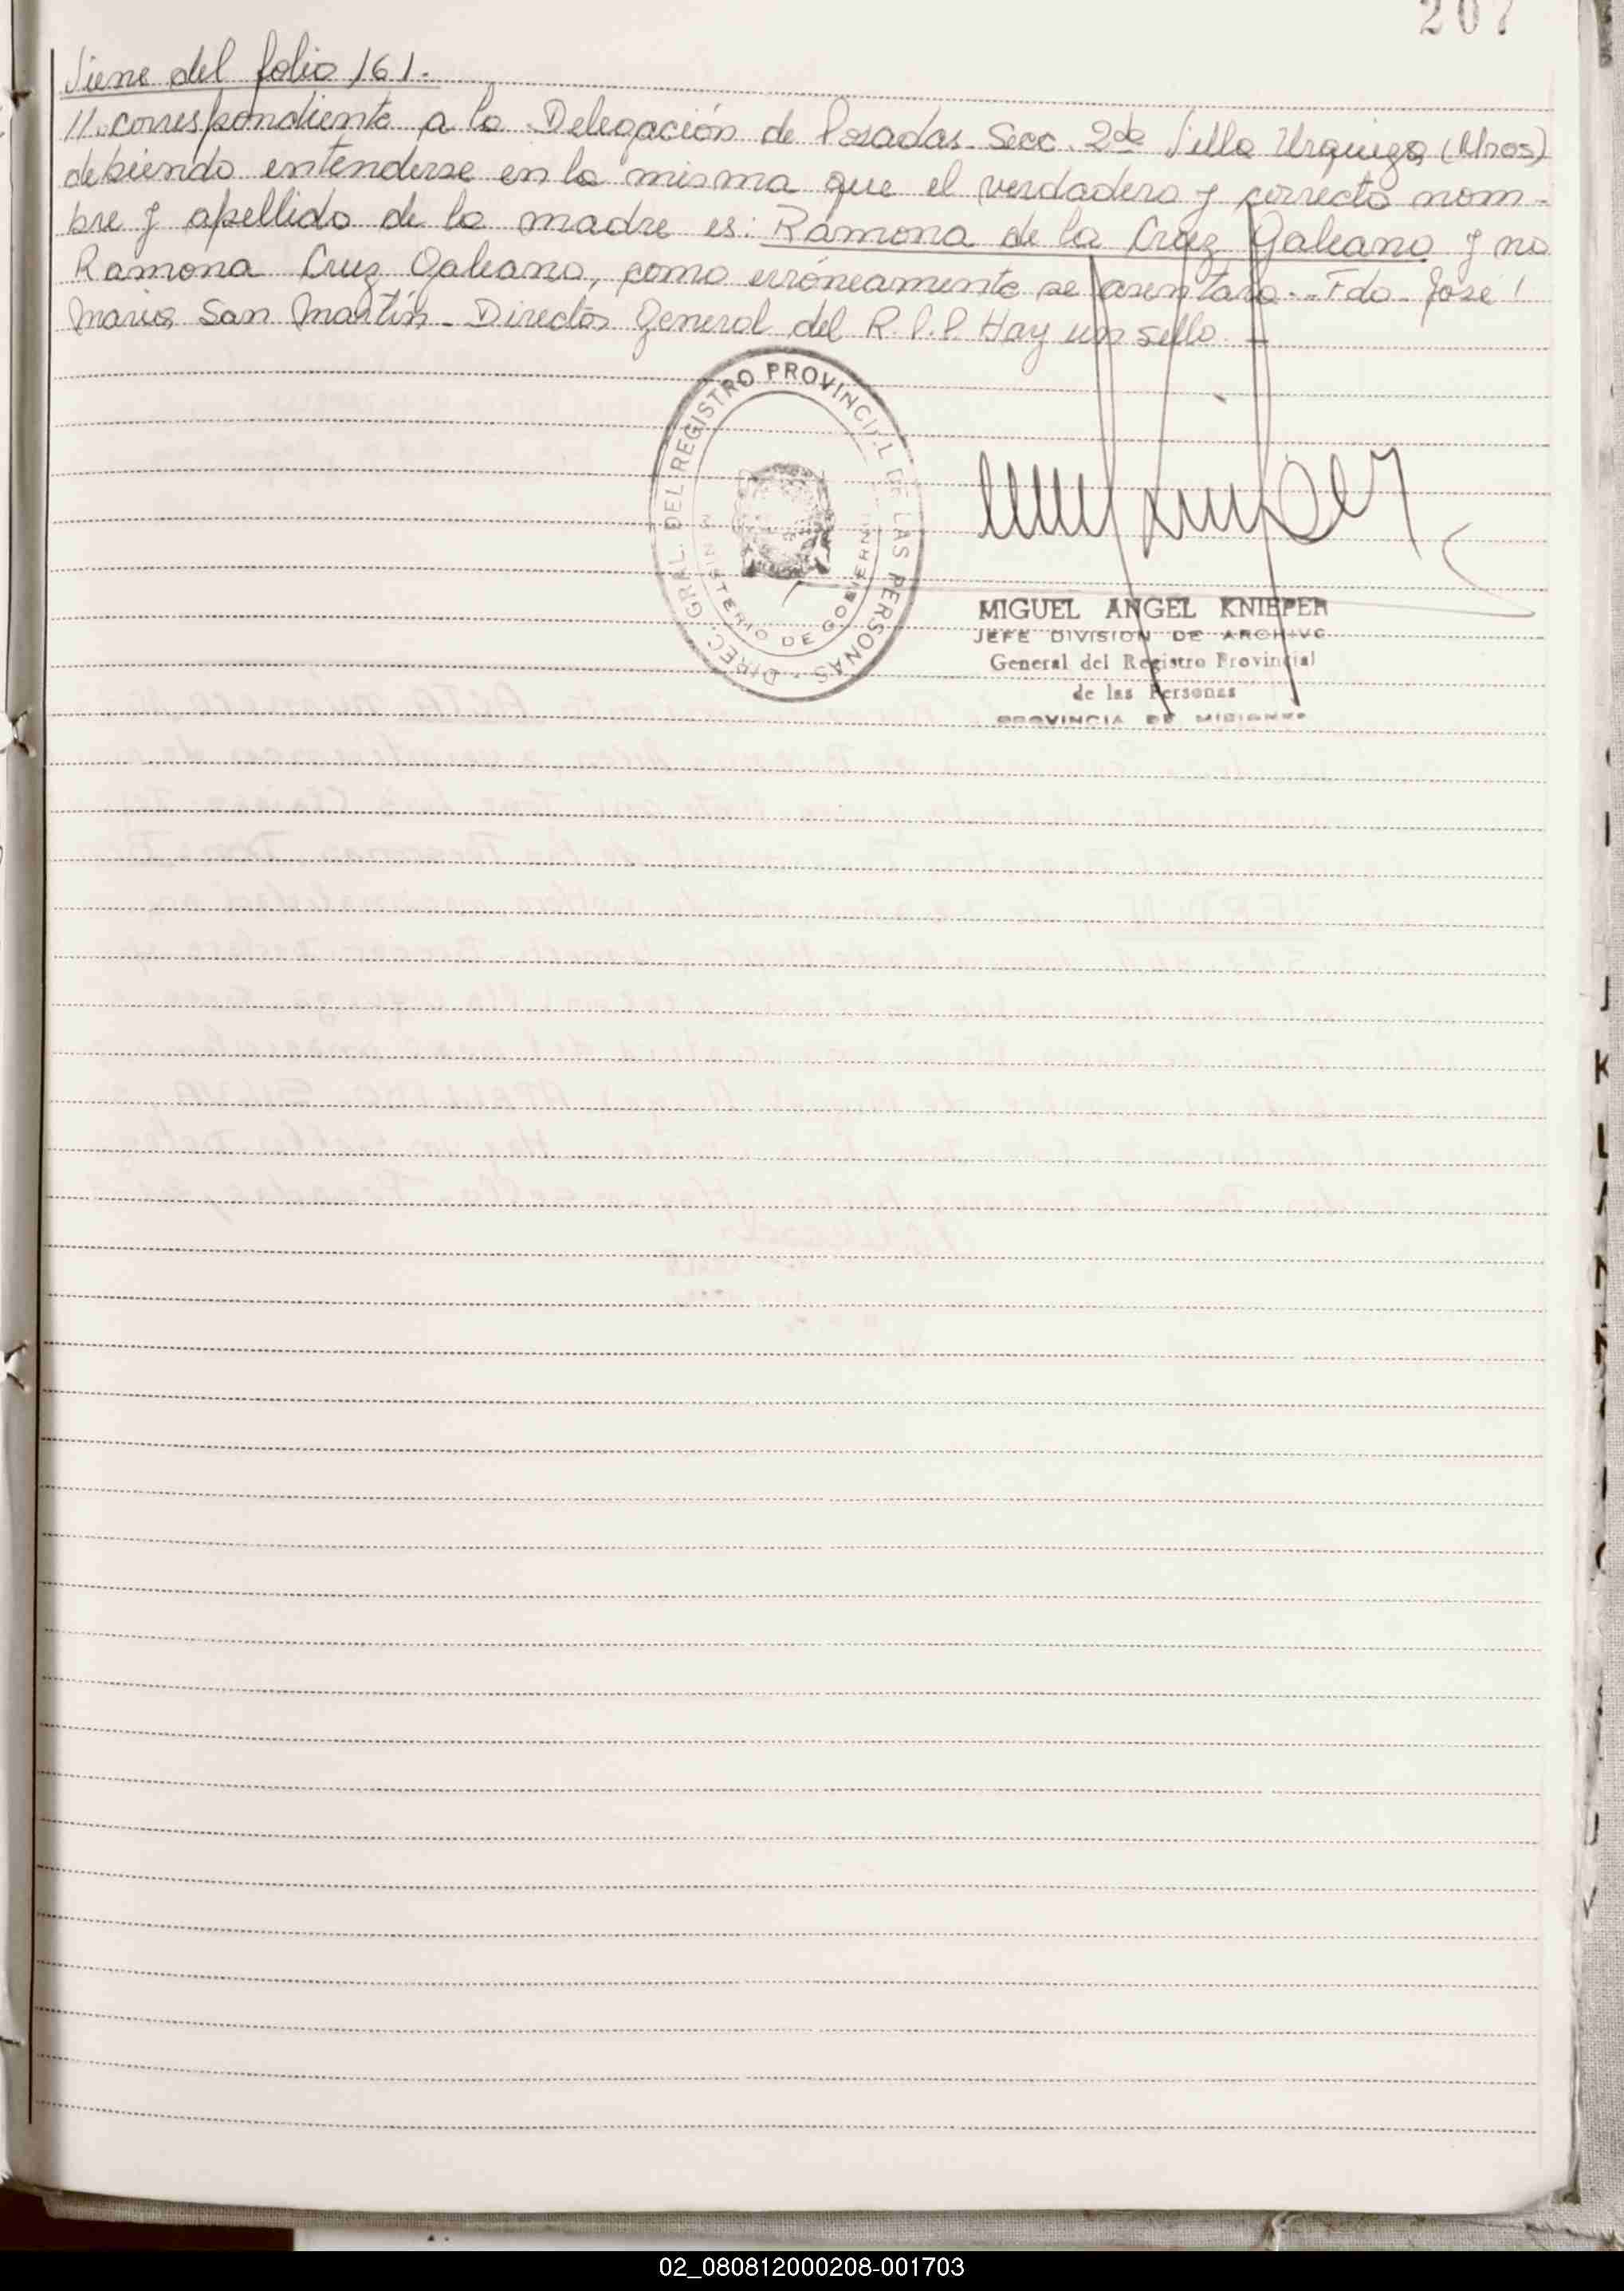 207
Viene del folio 161.-
//.correspondiente a la Delegación de Posadas - Secc. 2da Villa Urquiza (Mnes)
debiendo entenderse en la misma que el verdadero y correcto nom-
bre y apellido de la madre es: Ramona de la Cruz Galeano y no
Ramona Cruz Galeano, como erróneamente se asentara.- Fdo- José
Maria San Martín - Director General del R.P.P. Hay un sello.-
DIREC. GRAL. DEL REGISTRO PROVINCIAL DE LAS PERSONAS
MINISTERIO DE GOBIERNO
MIGUEL ANGEL KNIEPER
JEFE DIVISION DE ARCHIVO
General del Registro Provincial
de las Personas
PROVINCIA DE MISIONES
K
L
02_080812000208-001703